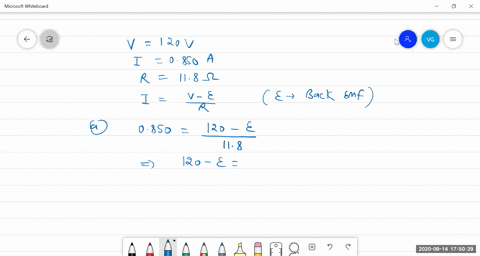 Microsoft Whiteboard
VG
V = 120 V
I = 0.850 A
R = 11.8 Ω
I = (V - ε)/R (ε → Back emf)
(a) 0.850 = (120 - ε)/11.8
⇒ 120 - ε =
2020-09-14 17:50:29